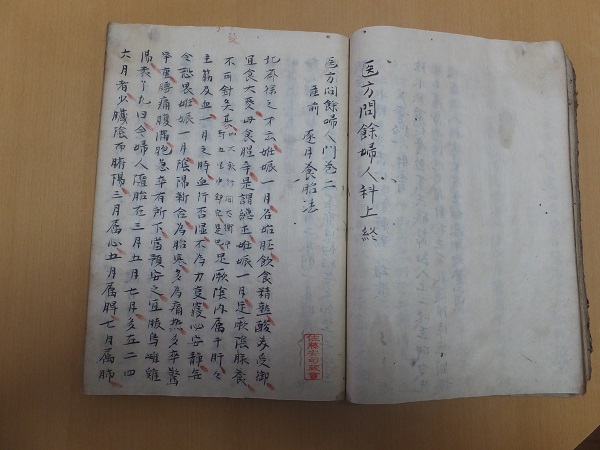 医方問餘婦人科上終
医方問餘婦人門巻二
産前 逐月養胎法
北齊徐之才云妊娠一月名始胚飲食精熟酸美受御
宜食大麥毋食腥辛是謂總主妊娠一月足厥陰脉養
不可針灸其 足厥陰内属于肝々
主筋及血一月之時血行否澀不為力事寝必安静無
令恐畏妊娠一月陰陽新合為胎寒多為痛熱多卒驚
挙重腰痛腹満胞急卒有所下當預安之宜服烏雌雞
湯袁了凡曰今婦人墮胎在三月五月七月多在二四
六月者少臓陰而腑陽三月属心五月属脾七月属肺